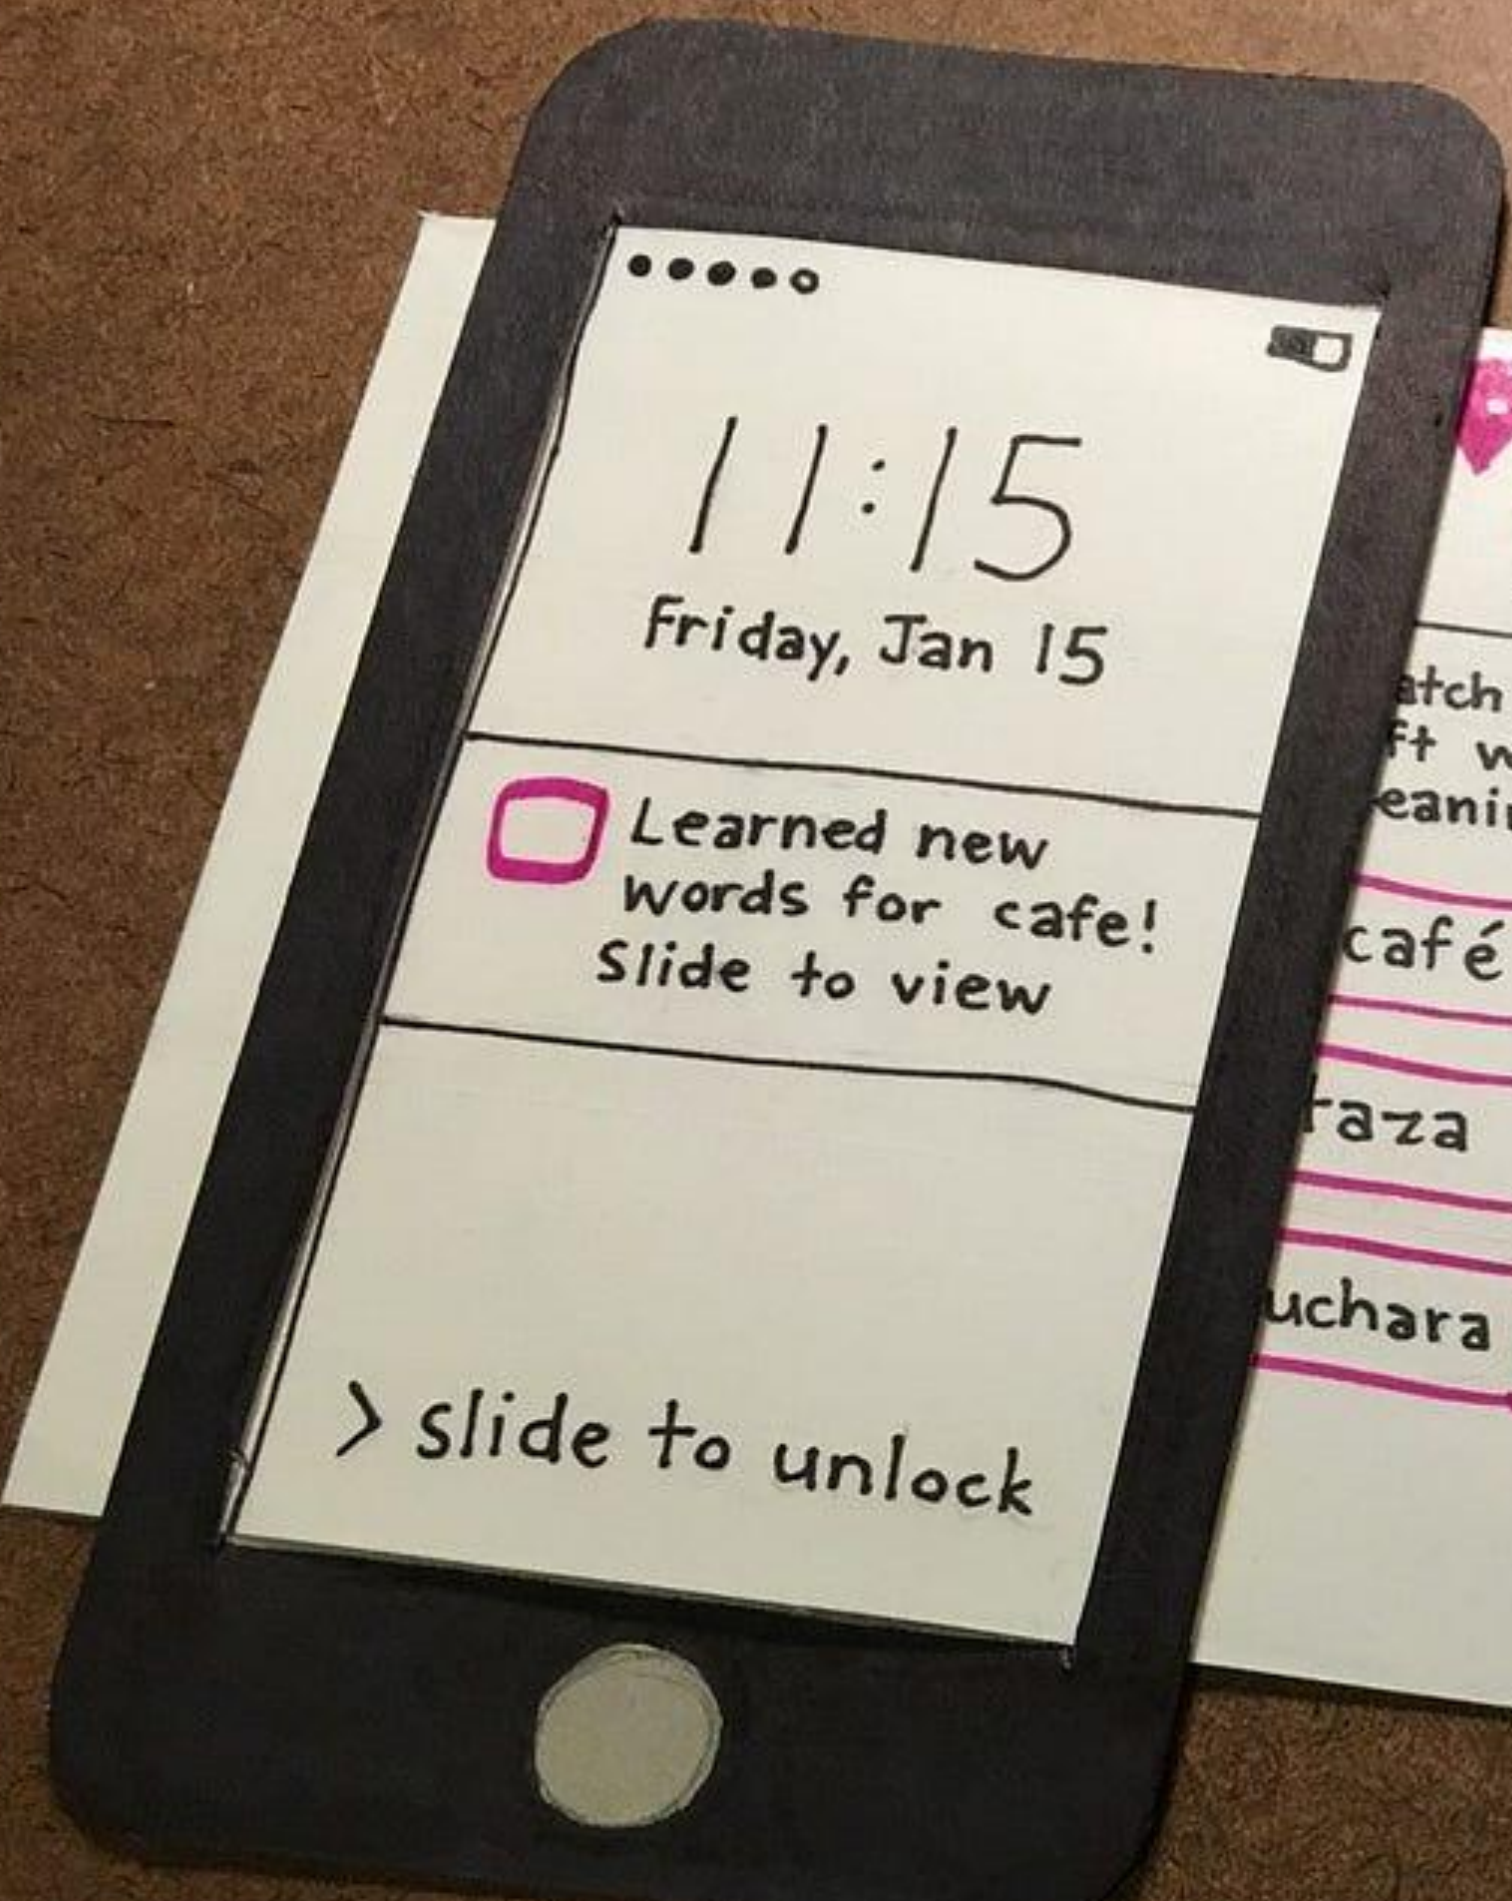 11:15
Friday, Jan 15
Learned new
words for cafe!
Slide to view
> slide to unlock
atch
ft w
eani
café
raza
uchara